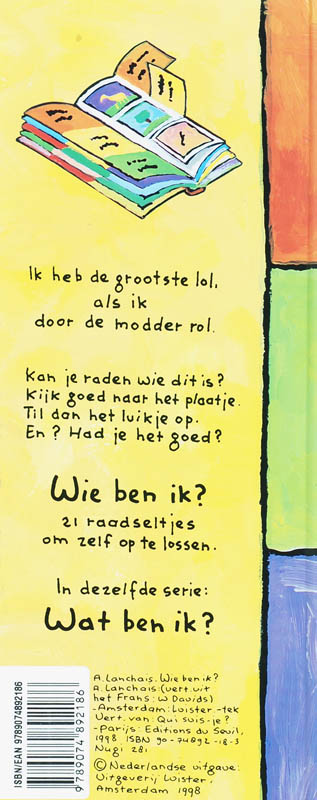 Ik heb de grootste lol,
als ik
door de modder rol.
Kan je raden wie dit is?
Kijk goed naar het plaatje.
Til dan het luikje op.
En? Had je het goed?
Wie ben ik?
21 raadseltjes
om zelf op te lossen.
In dezelfde serie:
Wat ben ik?
ISBN/EAN 9789074892186
9 789074 892186
A. Lanchais. Wie ben ik?
A. Lanchais: (vert. uit
het Frans: W Davids)
-Amsterdam: Luister-tek
Vert. van: Qui suis-je?
-parijs: Editions du Seuil,
1998 ISBN 90-74892-18-3
Nugi 281
© Nederlandse uitgave:
Uitgeverij Luister,
Amsterdam 1998